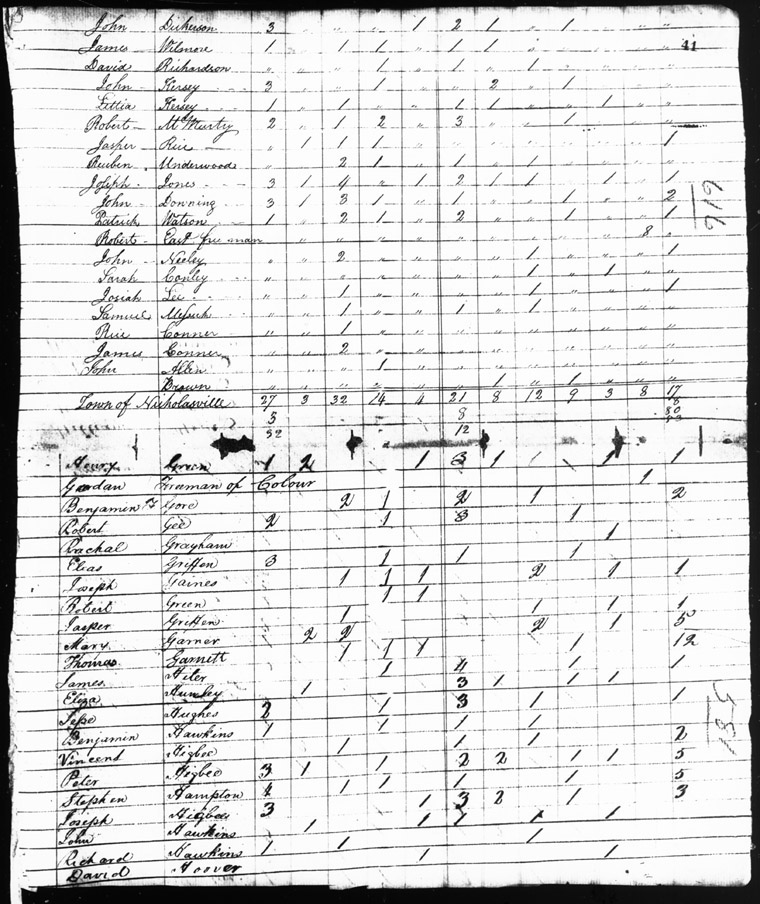 John Dickerson 3 " " " 1 2 1 " 1 " " "
James Wilmore 1 " 1 1 " 1 1 " " " " "
41
David Richardson " " " 1 " 1 " 1 " " " "
John Kersey 3 " " 1 " " 2 " 1 " " "
Kersey 1 " 1 " " 1 1 " " 1 " "
Robert McMurty 2 " 1 2 " 3 " " 1 " " "
Jasper Rice " 1 1 1 " " " " " " " 1
Reuben Underwood " " 2 1 " 1 " 1 " " " "
Joseph Jones 3 1 4 " 1 2 1 1 " 1 " 1
John Downing 3 1 3 1 " 1 " " 1 " " 2
Patrick Watson 1 " 2 1 " 2 " " 1 " " 1
616
Robert East free man " " " " " " " " " " 8 "
John Neeley " " 2 " " " " 1 " " " 1
Sarah Conley " " " " " " " 1 " 1 " "
Josiah Lee " " 1 " " " " 1 " " " 1
Samuel " " 1 " " 1 " 1 " " " "
Rice Conner " " 1 " " " " " " " " "
James Conner " " 2 " " " " " " " " "
John Allen " " " 1 " " " " " " " "
Brown " " " " " " 1 " 1 " " "
Town of Nicholasville 27 3 32 14 4 21 8 12 9 3 8 17
5 8 8
32 12 80
Henry Green 1 2 1 3 1 1 1
Freeman of Colour 1
Benjamin F Gore 2 1 2 1 2
Robert Gee 2 1 3 1
Rachal Grayham 1
Elias Griffen 3 1 1 1
Joseph Gaines 1 1 1 2 1 1
Robert Green 1 1
Jasper Griffen 1 1 1 1
Mary Garner 2 2 2 1 5
Thomas Garnett 1 1 1 1 12
James Hiter 1 4 1 1
Eliza Hunley 1 3 1 1 1
Hughes 2 1 3 1 1
Benjamin Hawkins 1 1 1 1
Vincent Higbee 1 1 1 2
Peter Higbee 3 1 1 2 2 1 1 5
Stephen Hampton 4 1 1 1 1 5
Joseph Higbee 3 1 3 2 1 3
John Hawkins 1 1 1 1 1
Richard Hawkins 1 1 1
David Hoover 1 1
185